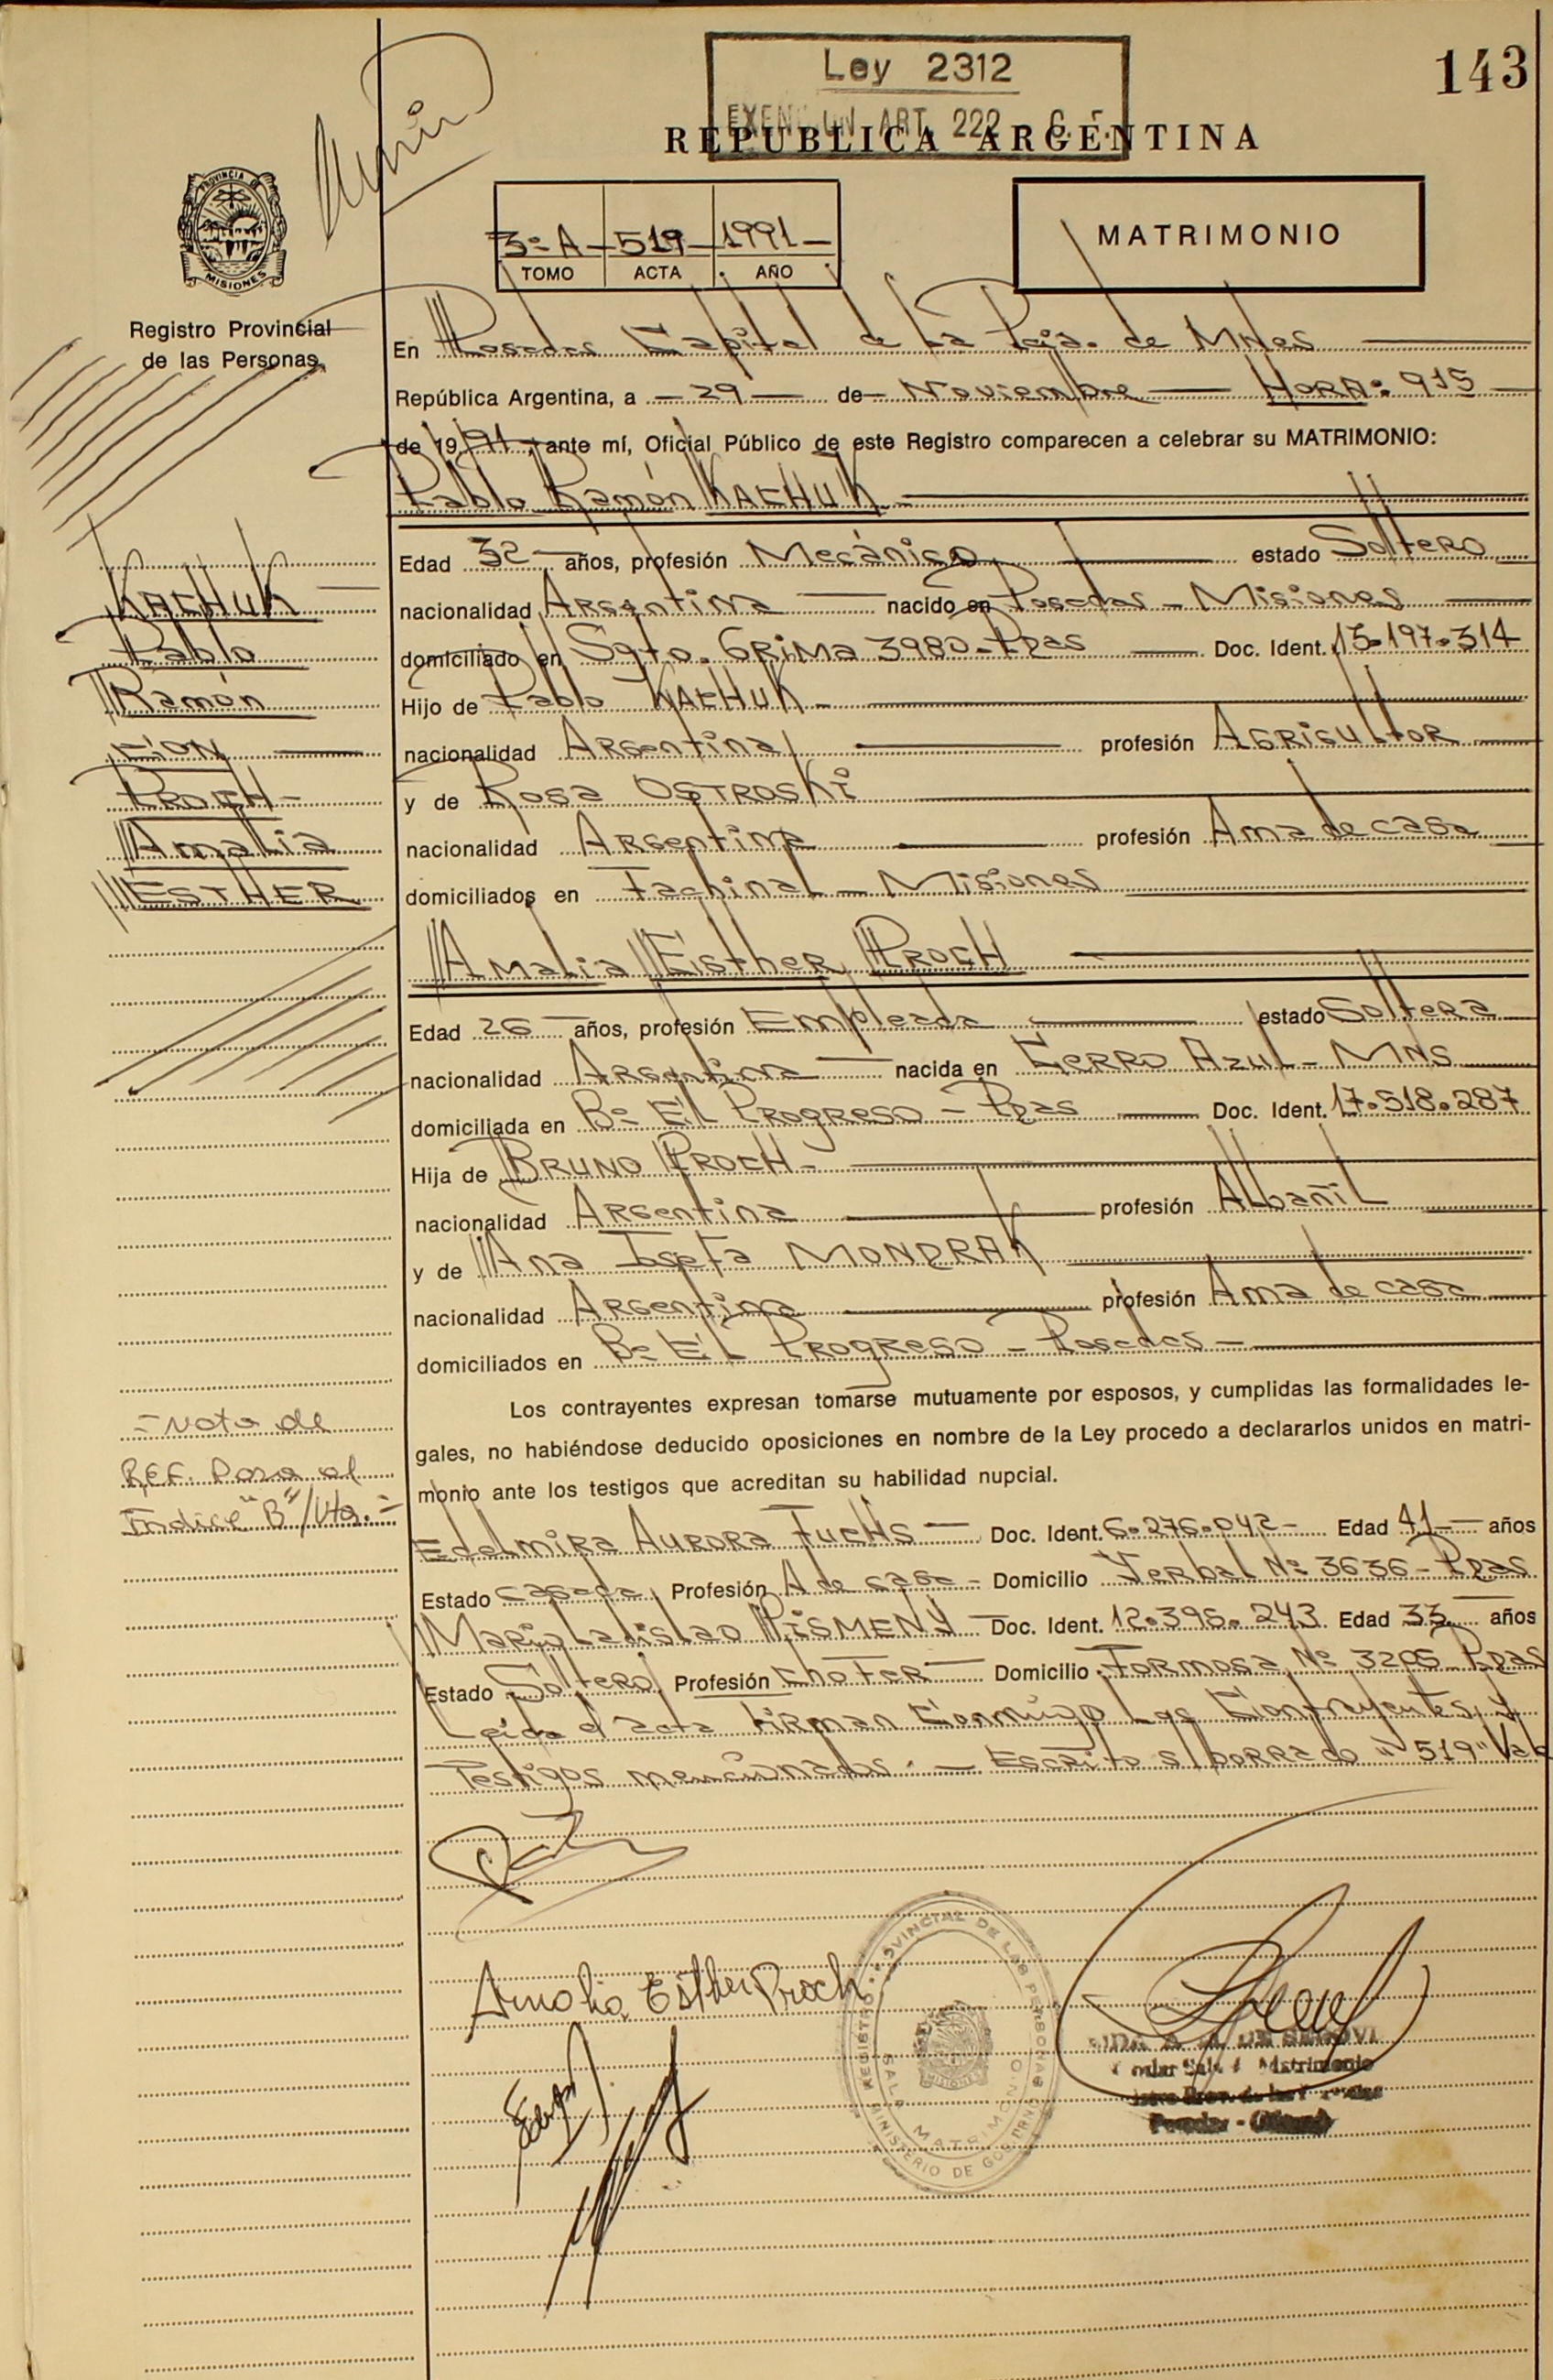 Ley 2312
EXENCION ART. 222 C. F.
143
REPUBLICA ARGENTINA
PROVINCIA DE
MISIONES
3º A - 519 - 1991 -
TOMO ACTA AÑO
MATRIMONIO
Registro Provincial
de las Personas
En Posadas Capital de La Pcia. de Mnes
República Argentina, a - 29 - de - Noviembre - HORA: 915
de 1991, ante mí, Oficial Público de este Registro comparecen a celebrar su MATRIMONIO:
Pablo Ramón KACHUK -
Edad 32 - años, profesión Mecánico estado Soltero
nacionalidad Argentina nacido en Posadas - Misiones
domiciliado en Sgto. Grima 3980 - Pdas Doc. Ident. 13.197.314
Hijo de Pablo KACHUK -
nacionalidad Argentina profesión Agricultor
y de Rosa OSTROSKI
nacionalidad Argentina profesión Ama de casa
domiciliados en Fachinal - Misiones
KACHUK
Pablo
Ramón
CON
PROCH -
Amalia
ESTHER
Amalia Esther PROCH
Edad 26 - años, profesión Empleada estado Soltera
nacionalidad Argentina nacida en Cerro Azul - Mns
domiciliada en Bº El Progreso - Pdas Doc. Ident. 17.518.287
Hija de BRUNO PROCH -
nacionalidad Argentina profesión Albañil
y de Ana Josefa MONDRAK
nacionalidad Argentina profesión Ama de casa
domiciliados en Bº El Progreso - Posadas -
Los contrayentes expresan tomarse mutuamente por esposos, y cumplidas las formalidades le-
gales, no habiéndose deducido oposiciones en nombre de la Ley procedo a declararlos unidos en matri-
monio ante los testigos que acreditan su habilidad nupcial.
- Nota de
Ref. Pasa al
Indice "B"/Vta. -
Edelmira Aurora FUCHS - Doc. Ident. 6.276.042 - Edad 41 - años
Estado casada Profesión A de casa - Domicilio Yerbal Nº 3636 - Pdas
Mario Ladislao PISMENY - Doc. Ident. 12.395.243 Edad 33 - años
Estado Soltero Profesión Chofer - Domicilio Formosa Nº 3205 Pdas
Leída el acta firman Conmigo Los Contrayentes y
Testigos mencionados. - Escrito s/borrado "519" Vale
Amalia Esther Proch
REGISTRO PROVINCIAL DE LAS PERSONAS
SALA MATRIMONIO
MINISTERIO DE GOBIERNO
DE SEGOVI
Matrimonio
Posadas -